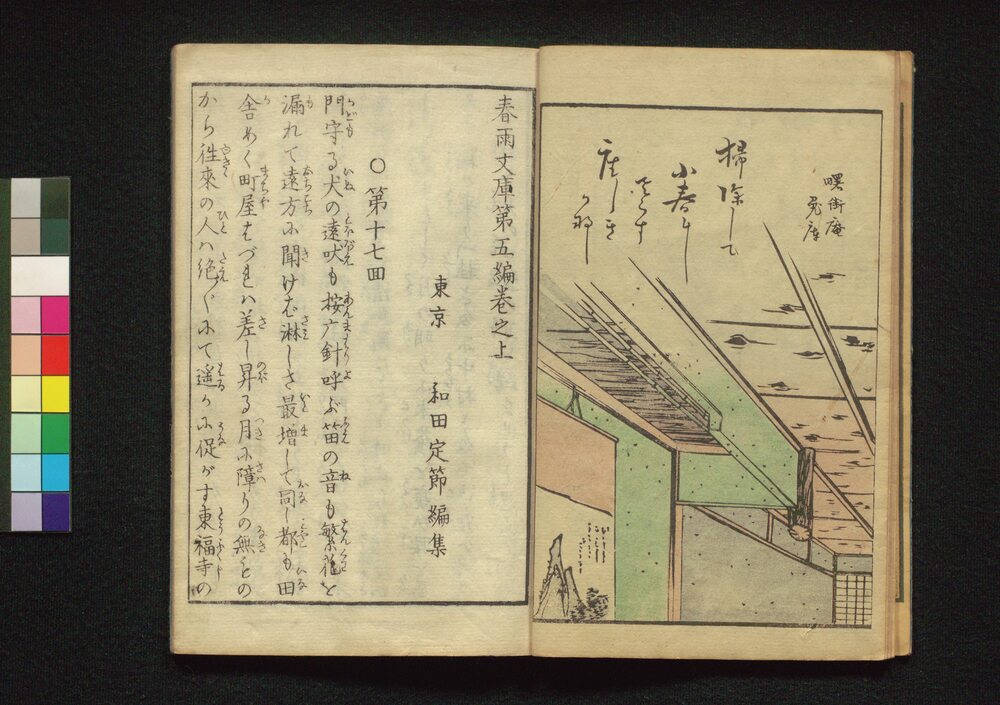 曙街庵
兎庵
掃除して
小春らし
さ
座しき
かな
春雨文庫第五編巻之上
東京　和田定節編集
○第十七回
門守る犬の遠吠も按广針呼ぶ笛の音も繁花と
漏れて遠方に聞けば淋しさ最増して同じ都も田
舎めく町屋はづれハ差し昇る月に障りの無きの
から往來の人ハ絶〴〵にて遥かに促がす東福寺の